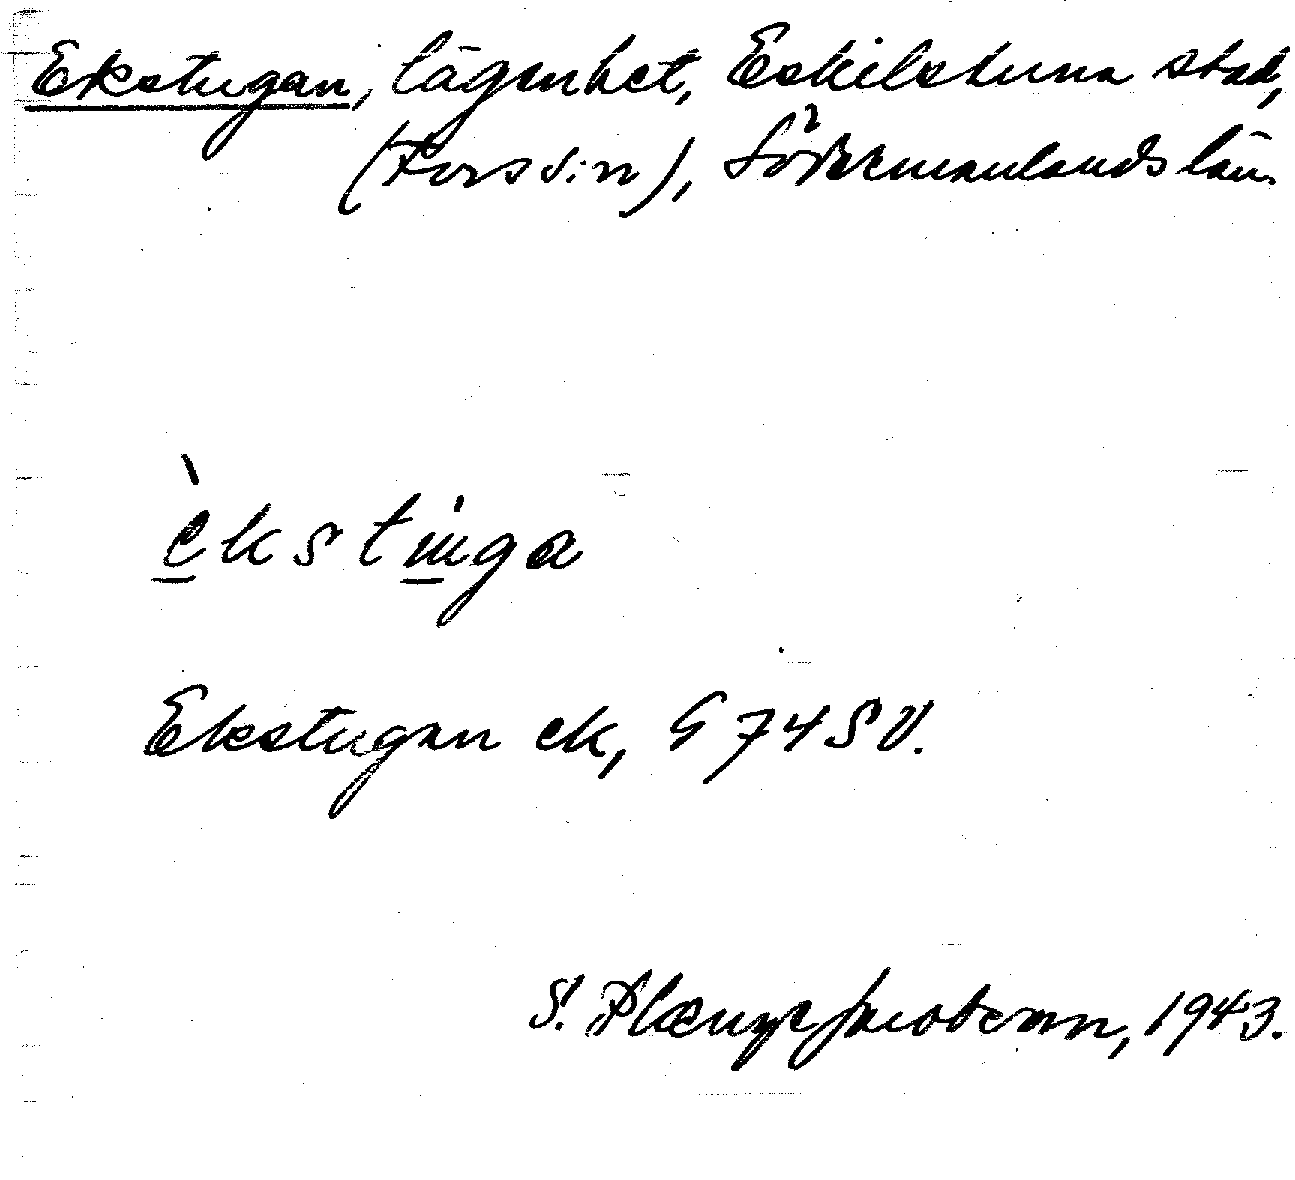 Ekstugan, lägenhet, Eskilstuna stad,
(Fors s:n), Södermanlands län.
èkstùga
Ekstugan ek, G 74 SV.
S. Plænge Jacobson, 1943.